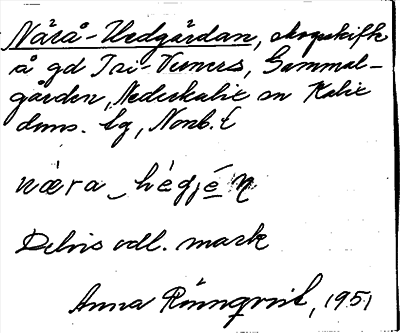 Närå-Hedgärdan, skogsskifte
å gd Isi-Veners, Gammal-
gården, Nederkalix sn Kalix
doms. lg, Norrb. l
næra hédjén
Delvis odl. mark
Anna Rönnqvist, 1951